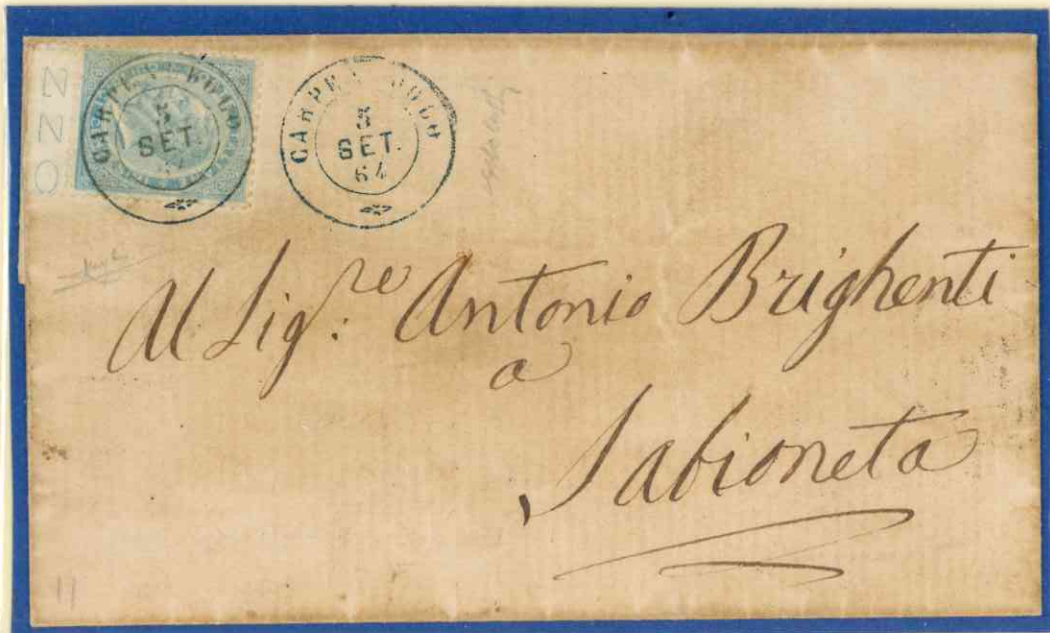 CARPENEDOLO
5
SET.
64
CARPENEDOLO
5
SET.
64
Al Sig:re Antonio Brighenti
a
Sabioneta
11